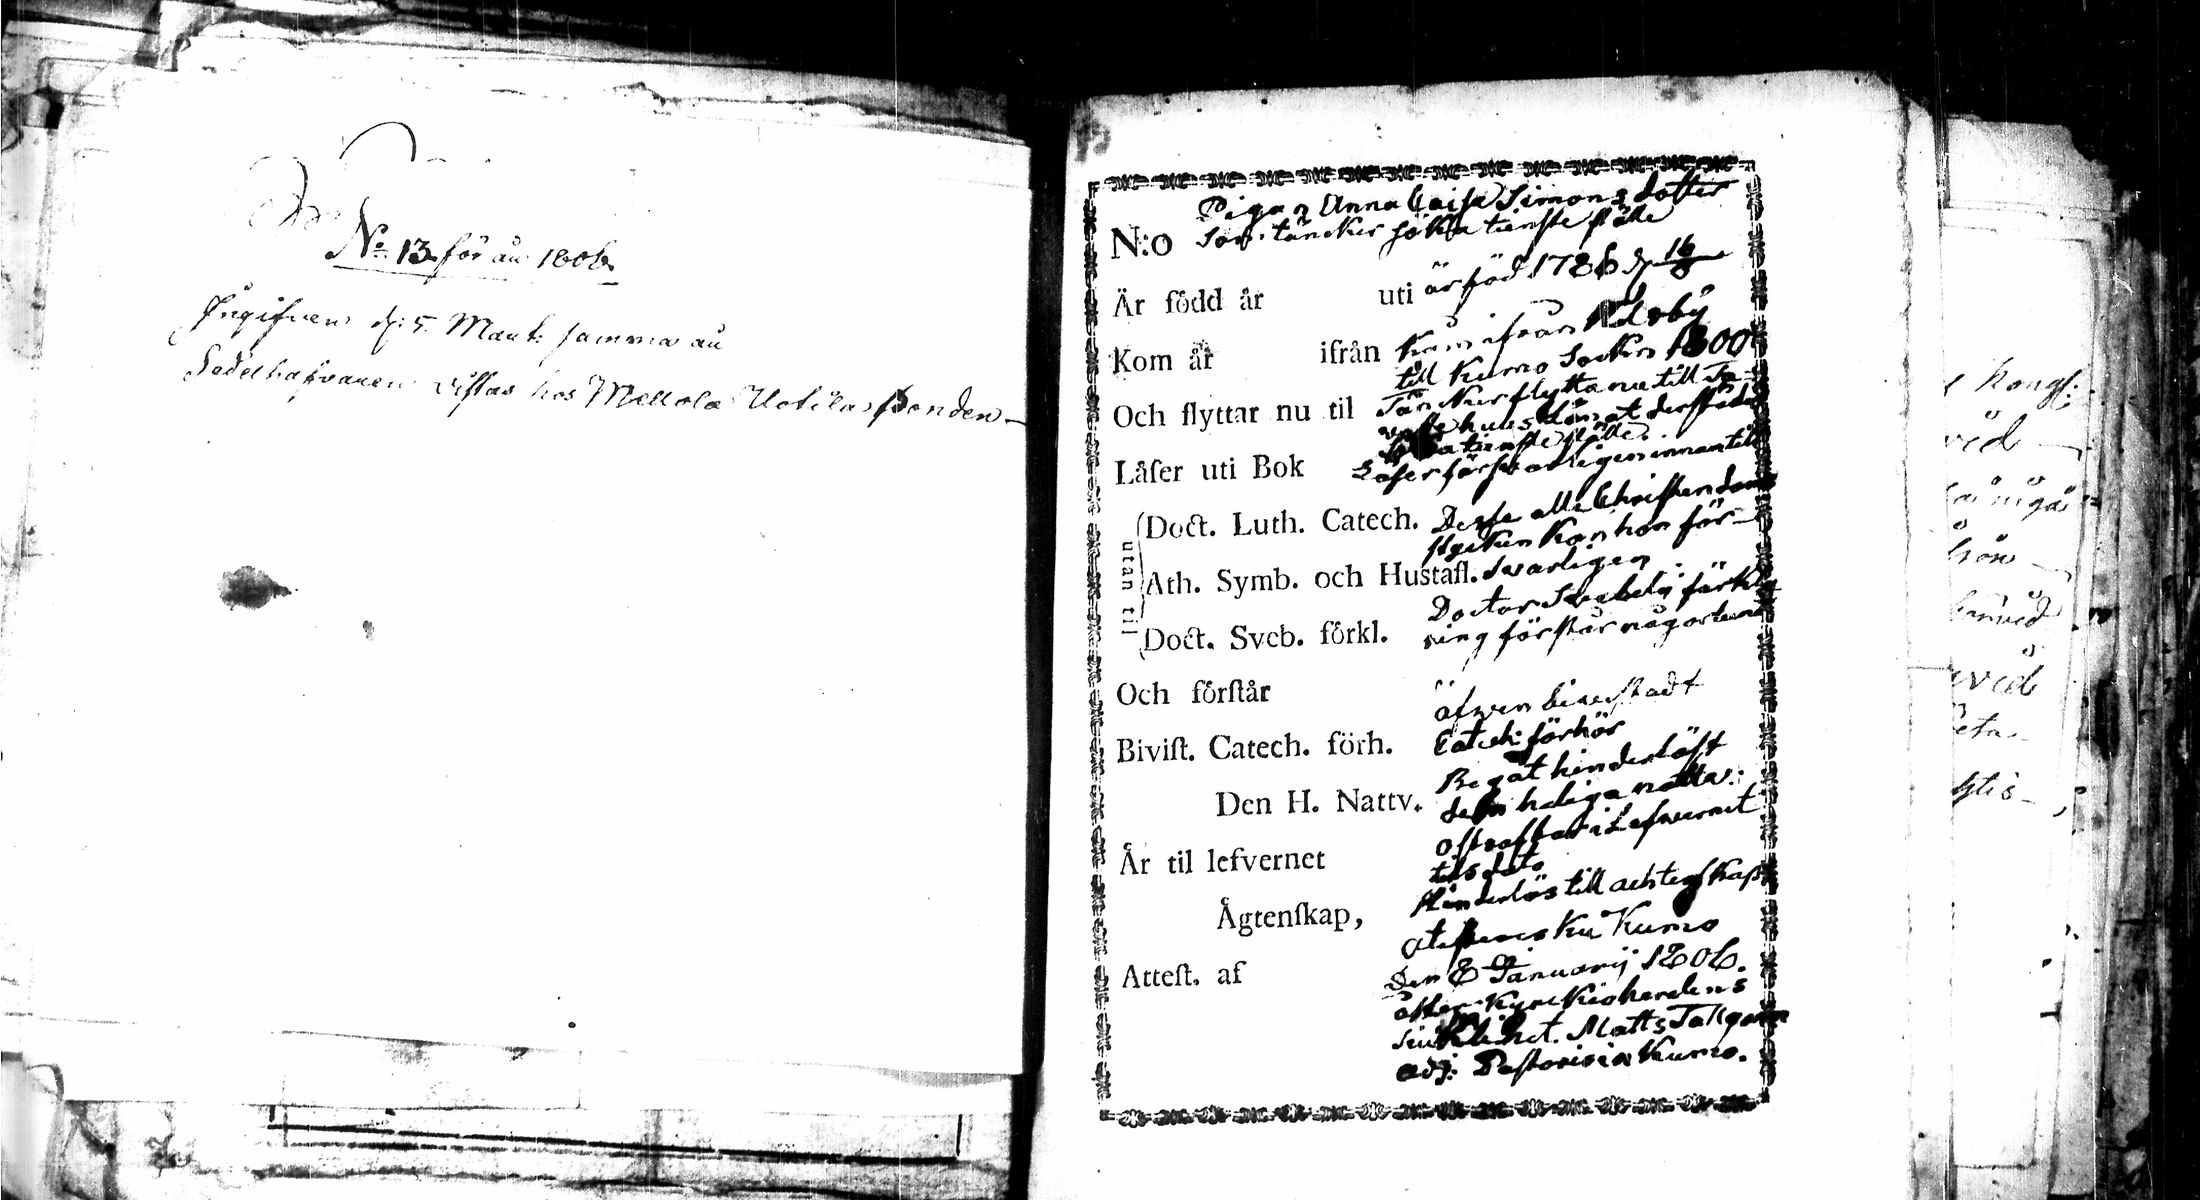 No 13 för år 1806
Ingifven d: 5 Mart: samma år
Sedelhafvaren vistas hos Mellola Uotila bonden
Pigan Anna Caisa Simons dotter
N:o som täncker söka tienste ställe
Är född år uti är född 1786 d 16/8
Kom år ifrån Kom ifrån
till Kumo Sockn 1800
Och flyttar nu til Täncker flytta nu till Ta-
vaste huus länat derstädes
tienste ställe
Låſer uti Bok Läser försvarligen innan till
utan til
Doct. Luth. Catech. Desse alla Christendoms
styken kan hon för-
Ath. Symb. och Huſtafl. svarligen
Doct. Sveb. förkl. Doctor Svebelii förkla
ring förstår någorlunda
Och förſtår
Biviſt. Catech. förh. äfven bivistadt
Catech: förhör
Den H. Nattv. Begåt hinderlöst
den heliga nattv:
År til lefvernet ostrafbar i Lefvernet
tils dato
Ägtenſkap, Hinderlös till ächtenskap
Atteſt. af Kumo
Den 8 Januarij 1806.
åtter Kyrckioherdens
Matts Tallgren
adj: Pastoris i Kumo.
kongl: